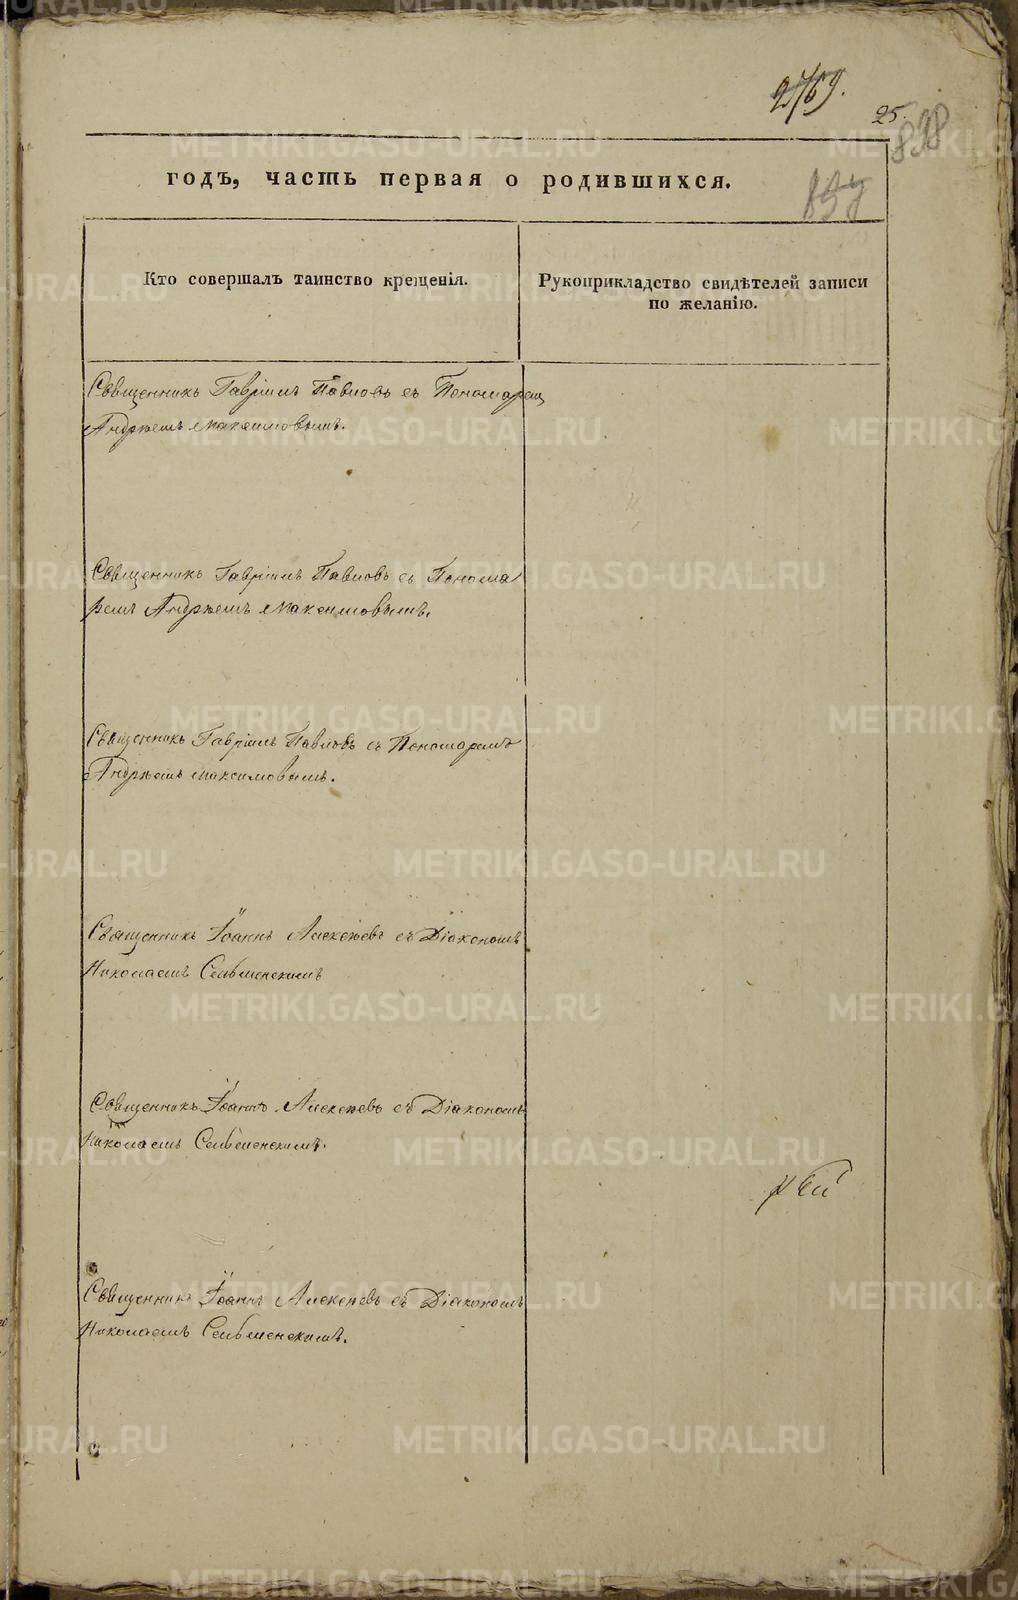 25.
898
годъ, часть первая о родившихся.
Кто совершалъ таинство крещенія.
Рукоприкладство свидѣтелей записи
по желанію.
Священникъ Гавріилъ Павловъ съ Пономарем
Андрѣемъ Максимовымъ.
Священникъ Гавріилъ Павловъ съ Понома
ремъ Андрѣемъ Максимовымъ.
Священникъ Гавріилъ Павловъ съ Пономаремъ
Андрѣемъ Максимовымъ.
Священникъ Іоаннъ Алексѣевъ съ Діакономъ
Николаемъ Сельменскимъ
Священникъ Іоаннъ Алексѣевъ съ Діакономъ
Николаемъ Сельменскимъ.
Священникъ Іоаннъ Алексѣевъ съ Діакономъ
Николаемъ Сельменскимъ.
METRIKI.GASO-URAL.RU